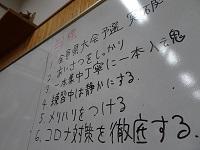 目標
1. 全員県大会予選突破
2. あいさつをしっかり
3. 一本集中丁寧に一本入魂
4. 練習中は静かにする。
5. メリハリをつける
6. コロナ対策を徹底する。